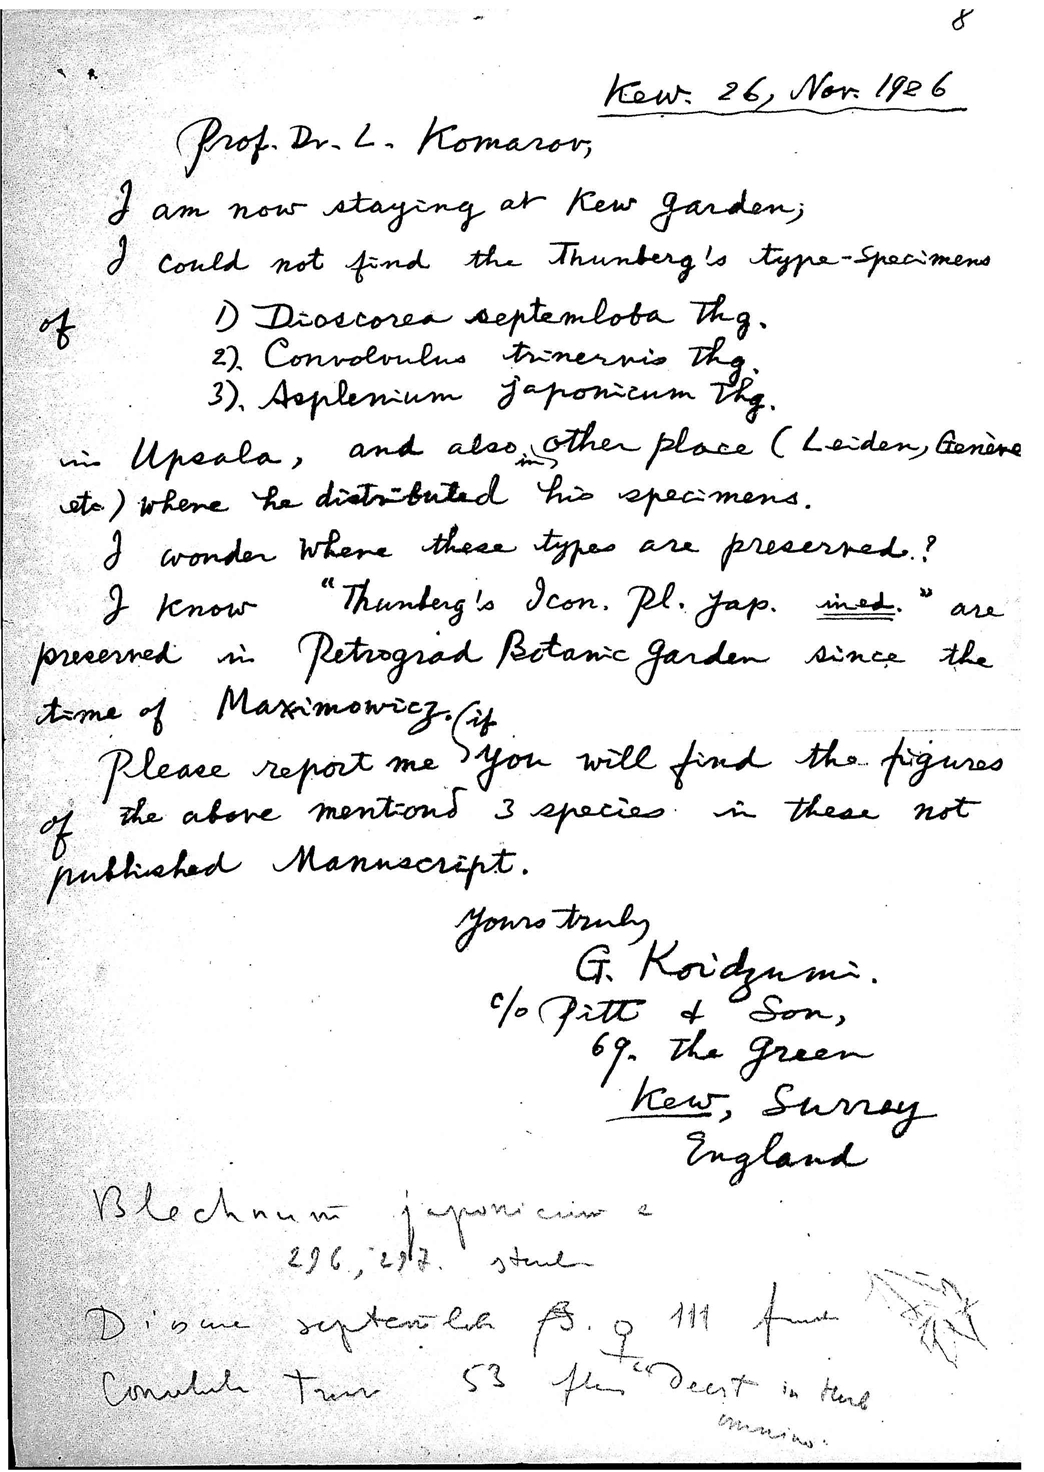 8
Kew. 26, Nov. 1926
Prof. Dr. L. Komarov,
I am now staying at Kew Garden;
I could not find the Thunberg's type-specimens
of 1) Dioscorea septemloba Thg.
2). Convolvulus trinervis Thg.
3). Asplenium japonicum Thg.
in Upsala, and also in other place (Leiden, Genève
etc) where he distributed his specimens.
I wonder where these types are preserved.?
I know "Thunberg's Icon. Pl. Jap. ined." are
preserved in Petrograd Botanic Garden since the
time of Maximowicz.
Please report me if you will find the figures
of the above mentiond 3 species in these not
published Manuscript.
Yours truly
G. Koidzumi.
c/o Pitt & Son,
69. The Green
Kew, Surrey
England
Blechnum japonicum
296, 297.
septemlob β. ♀ 111
53 "Deest in herb
omnino.